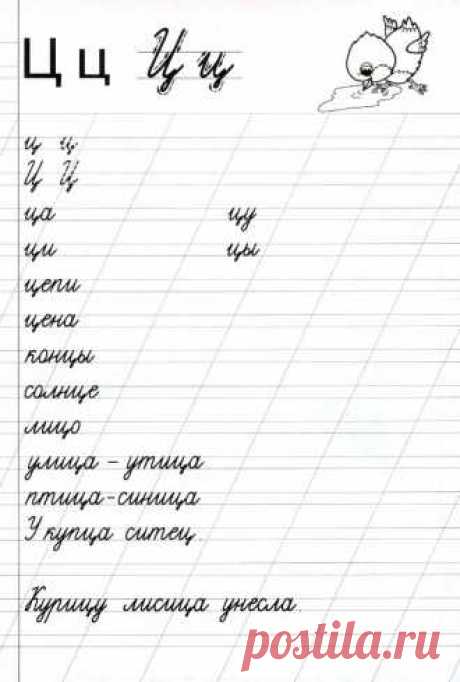 Ц ц Ц ц
ц ц
Ц Ц
ца цу
ци цы
цепи
цена
концы
солнце
лицо
улица – утица
птица - синица
У купца ситец.
Курицу лисица унесла.
postila.ru